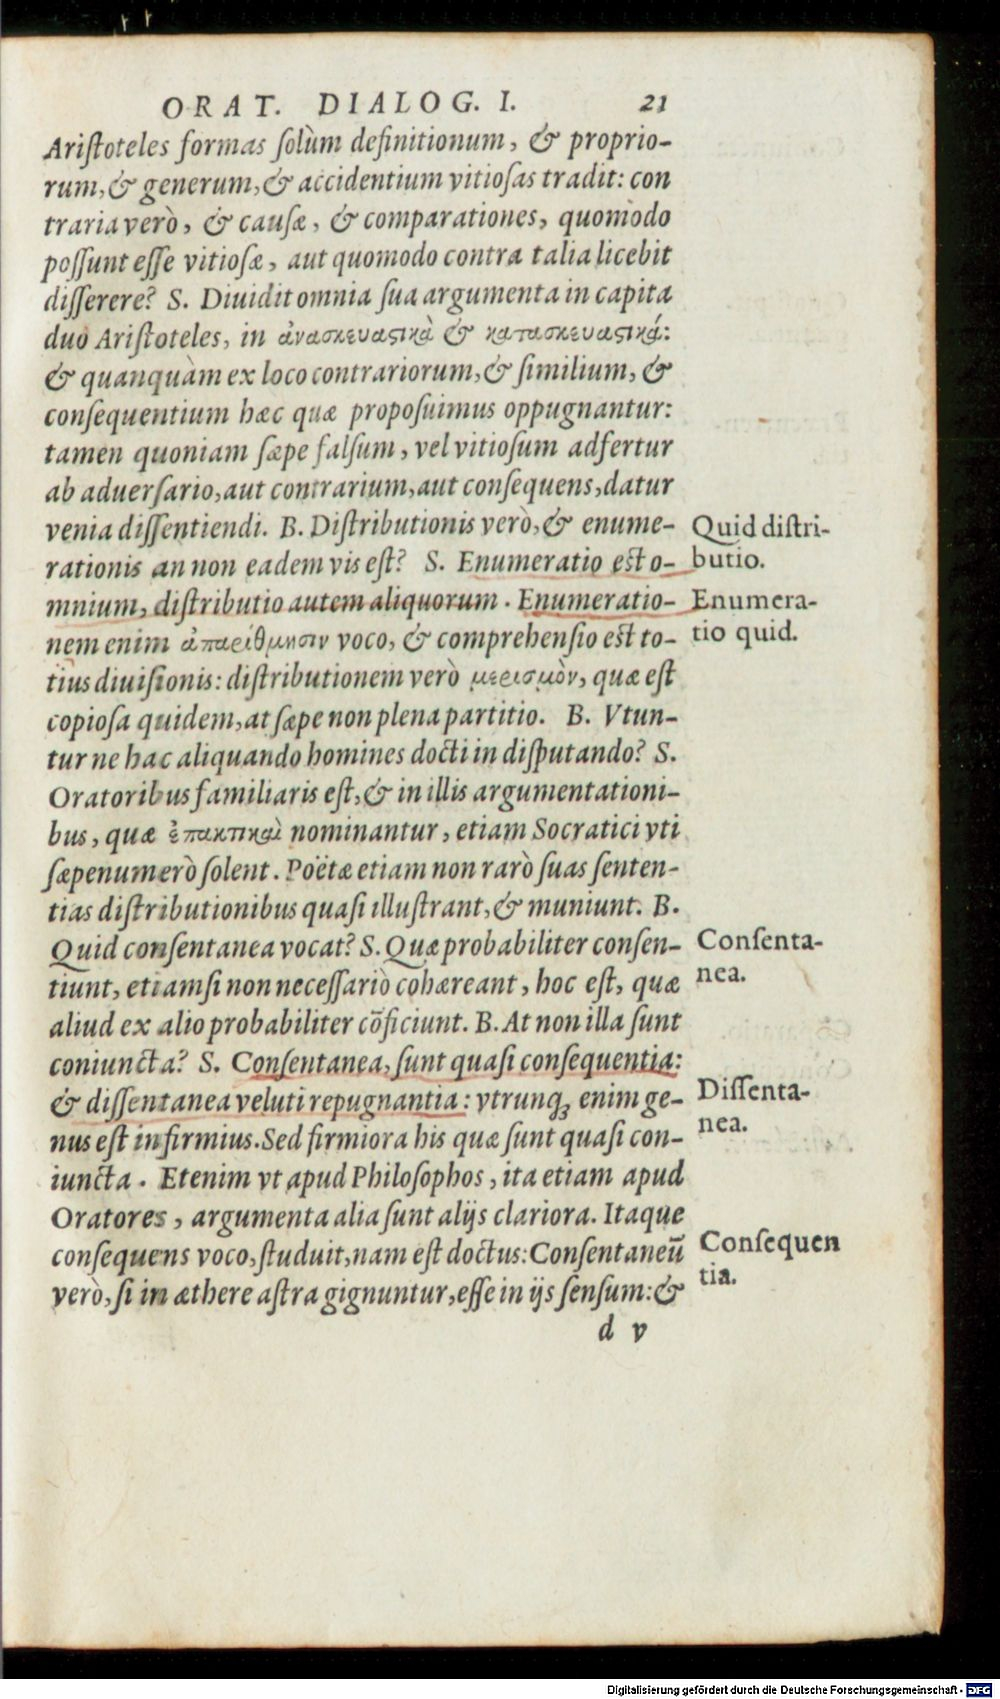 ORAT. DIALOG. I. 21
Ariſtoteles formas ſolùm definitionum, & proprio-
rum, & generum, & accidentium vitioſas tradit: con
traria verò, & cauſæ, & comparationes, quomodo
poſſunt eſſe vitioſæ, aut quomodo contra talia licebit
diſſerere? S. Diuidit omnia ſua argumenta in capita
duo Ariſtoteles, in ἀνασκευαστικὰ & κατασκευαστικά:
& quanquàm ex loco contrariorum, & ſimilium, &
conſequentium hæc quæ propoſuimus oppugnantur:
tamen quoniam ſæpe falſum, vel vitioſum adfertur
ab aduerſario, aut contrarium, aut conſequens, datur
venia diſſentiendi. B. Diſtributionis verò, & enume-
Quid diſtri-
rationis an non eadem vis eſt? S. Enumeratio eſt o-
butio.
mnium, diſtributio autem aliquorum. Enumeratio-
Enumera-
nem enim ἀπαρίθμησιν voco, & comprehenſio eſt to-
tio quid.
tius diuiſionis: diſtributionem verò μερισμὸν, quæ eſt
copioſa quidem, at ſæpe non plena partitio. B. Vtun-
tur ne hac aliquando homines docti in diſputando? S.
Oratoribus familiaris eſt, & in illis argumentationi-
bus, quæ ἐπακτικαὶ nominantur, etiam Socratici vti
ſæpenumerò ſolent. Poëtæ etiam non rarò ſuas ſenten-
tias diſtributionibus quaſi illuſtrant, & muniunt. B.
Quid conſentanea vocat? S. Quæ probabiliter conſen-
Conſenta-
tiunt, etiamſi non neceſſariò cohæreant, hoc eſt, quæ
nea.
aliud ex alio probabiliter cōficiunt. B. At non illa ſunt
coniuncta? S. Conſentanea, ſunt quaſi conſequentia:
& diſſentanea veluti repugnantia: vtrunq; enim ge-
Diſſenta-
nus eſt infirmius. Sed firmiora his quæ ſunt quaſi con-
nea.
iuncta. Etenim vt apud Philoſophos, ita etiam apud
Oratores, argumenta alia ſunt alijs clariora. Itaque
conſequens voco, ſtuduit, nam eſt doctus: Conſentaneū
Conſequen
verò, ſi in æthere aſtra gignuntur, eſſe in ijs ſenſum: &
tia.
d v
Digitalisierung gefördert durch die Deutsche Forschungsgemeinschaft - DFG